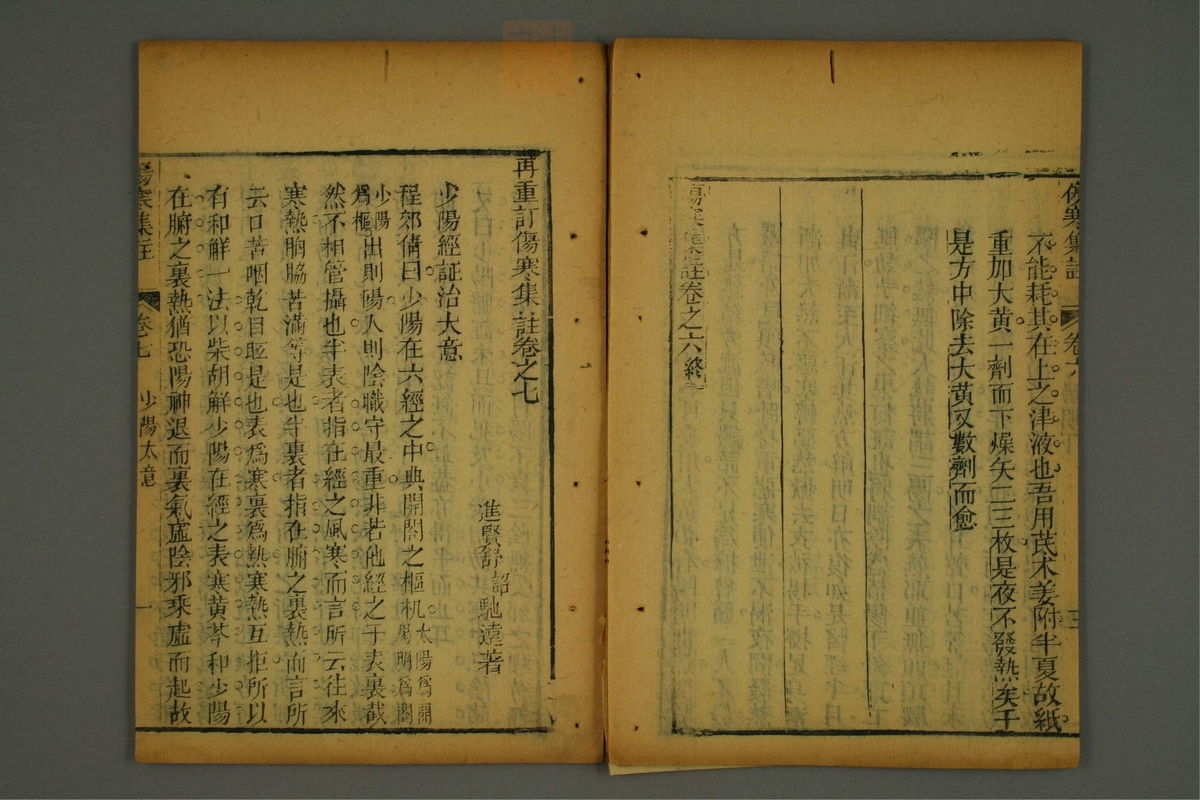 傷寒集註
卷六
三
不能耗其在上之津液也吾用芪朮姜附半夏故紙
重加大黄一劑而下燥矢二三枚是夜不發熱矣于
是方中除去大黄又數劑而愈
傷寒集註卷之六終
再重訂傷寒集註卷之七
進賢舒詔馳遠著
少陽經証治大意
程郊倩曰少陽在六經之中典開閤之樞机太陽為開陽明為閤
少陽為樞出則陽入則陰職守最重非若他經之于表裏截
然不相管攝也半表者指在經之風寒而言所云往來
寒熱胸脇苦滿等是也半裏者指在腑之裏熱而言所
云口苦咽乾目眩是也表為寒裏為熱寒熱互拒所以
有和解一法以柴胡解少陽在經之表寒黄芩和少陽
在腑之裏熱猶恐陽神退而裏氣虛陰邪乘虛而起故
傷寒集註
卷七
少陽大意
一